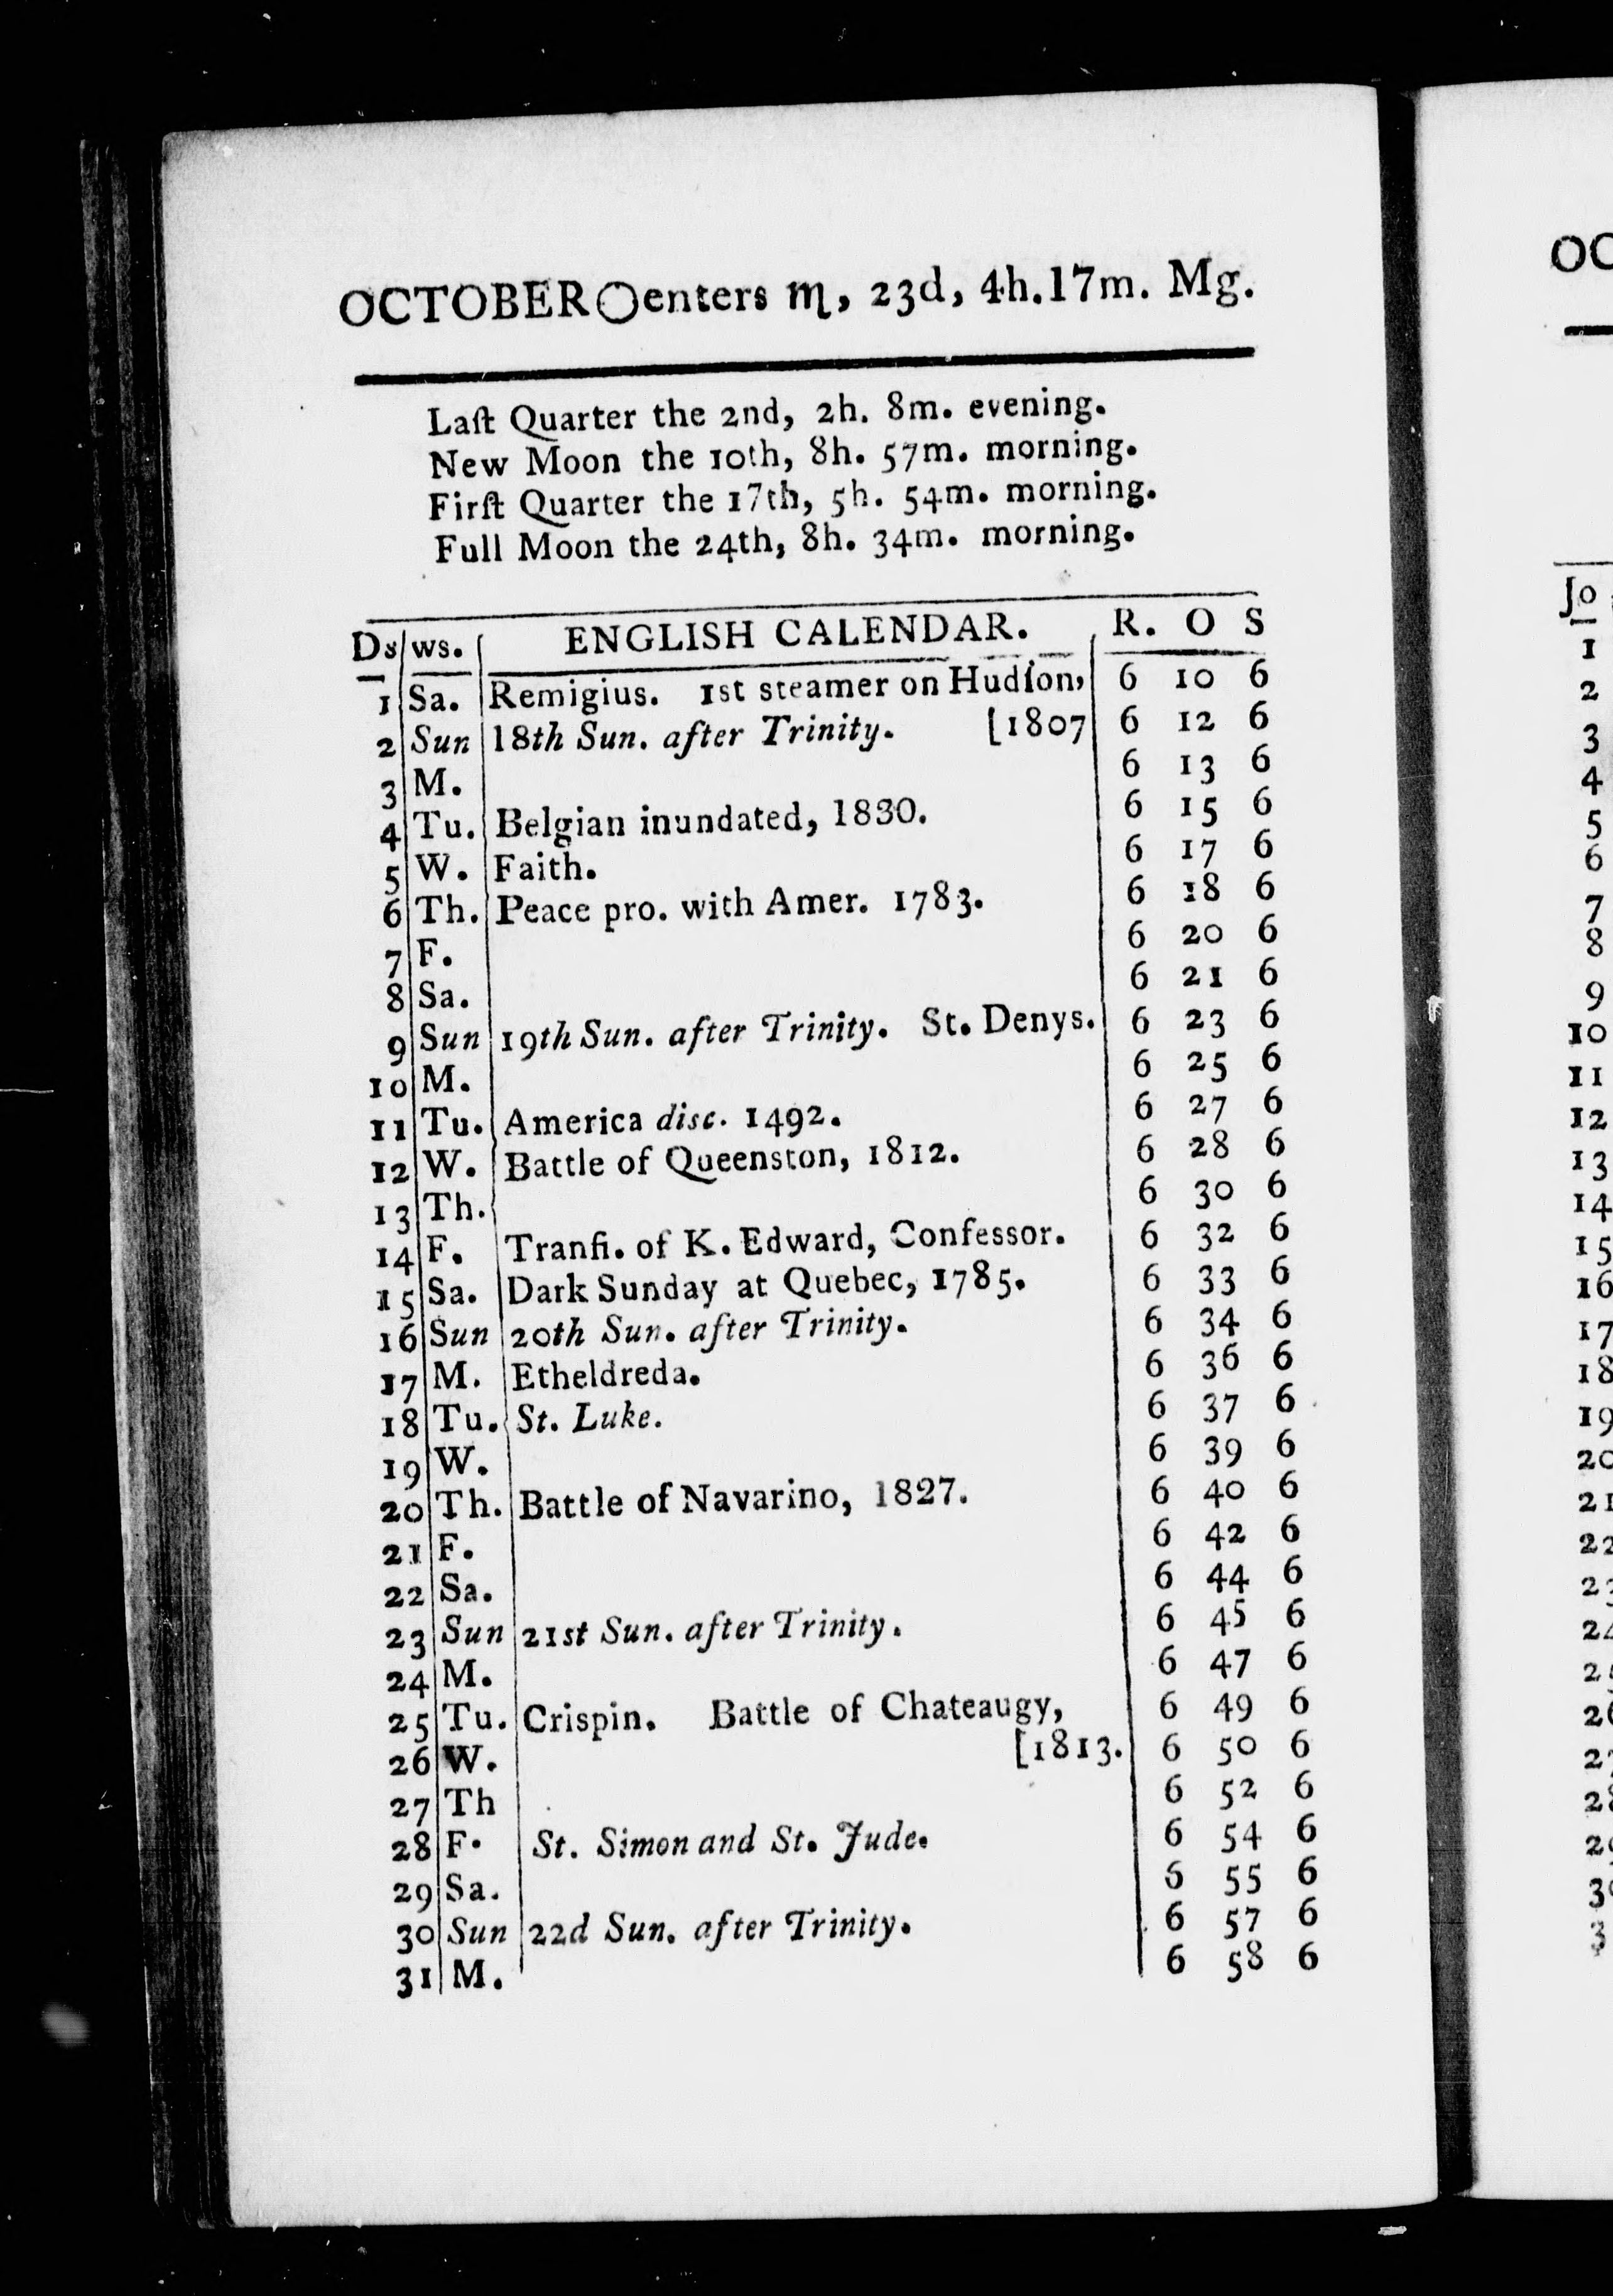 OCTOBER ◯ enters ♏, 23d, 4h.17m. Mg.
Laſt Quarter the 2nd, 2h. 8m. evening.
New Moon the 10th, 8h. 57m. morning.
Firſt Quarter the 17th, 5h. 54m. morning.
Full Moon the 24th, 8h. 34m. morning.
Ds ws. ENGLISH CALENDAR. R. O S
1 Sa. Remigius. 1st steamer on Hudſon, 6 10 6
2 Sun 18th Sun. after Trinity. [1807 6 12 6
3 M. 6 13 6
4 Tu. Belgian inundated, 1830. 6 15 6
5 W. Faith. 6 17 6
6 Th. Peace pro. with Amer. 1783. 6 18 6
7 F. 6 20 6
8 Sa. 6 21 6
9 Sun 19th Sun. after Trinity. St. Denys. 6 23 6
10 M. 6 25 6
11 Tu. America disc. 1492. 6 27 6
12 W. Battle of Queenston, 1812. 6 28 6
13 Th. 6 30 6
14 F. Tranſi. of K. Edward, Confessor. 6 32 6
15 Sa. Dark Sunday at Quebec, 1785. 6 33 6
16 Sun 20th Sun. after Trinity. 6 34 6
17 M. Etheldreda. 6 36 6
18 Tu. St. Luke. 6 37 6
19 W. 6 39 6
20 Th. Battle of Navarino, 1827. 6 40 6
21 F. 6 42 6
22 Sa. 6 44 6
23 Sun 21st Sun. after Trinity. 6 45 6
24 M. 6 47 6
25 Tu. Crispin. Battle of Chateaugy, 6 49 6
26 W. [1813. 6 50 6
27 Th 6 52 6
28 F. St. Simon and St. Jude. 6 54 6
29 Sa. 6 55 6
30 Sun 22d Sun. after Trinity. 6 57 6
31 M. 6 58 6
OC
Jo
1
2
3
4
5
6
7
8
9
10
11
12
13
14
15
16
17
18
19
20
21
22